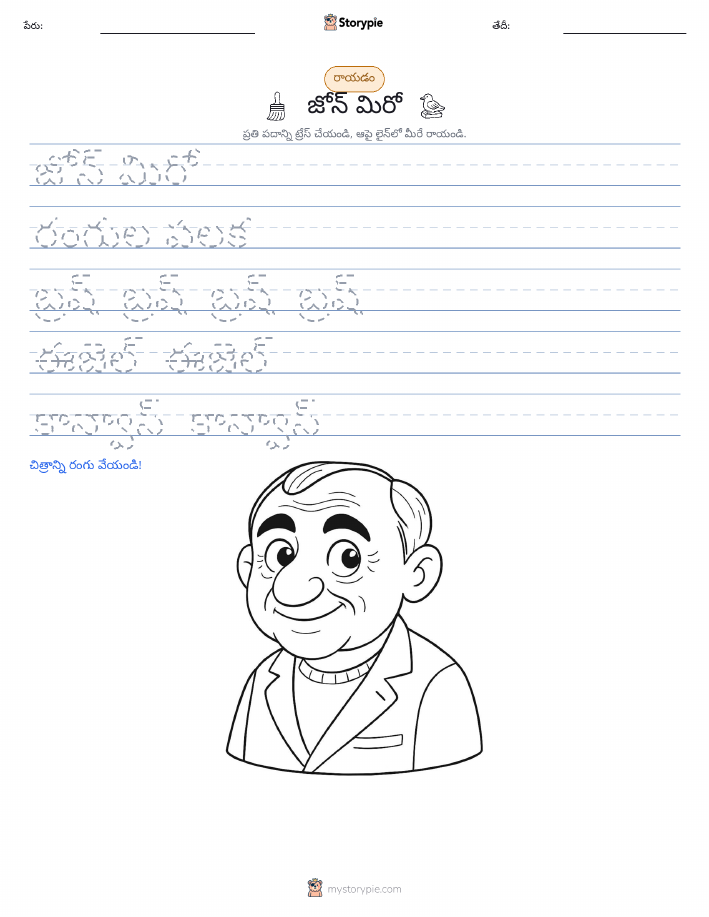 పేరు:
Storypie
తేదీ:
రాయడం
జోన్ మిరో
ప్రతి పదాన్ని ట్రేస్ చేయండి, ఆపై లైన్‌లో మీరే రాయండి.
జోన్ మిరో
రంగుల పలక
బ్రష్ బ్రష్ బ్రష్ బ్రష్
ఈజెల్ ఈజెల్
కాన్వాస్ కాన్వాస్
చిత్రాన్ని రంగు వేయండి!
mystorypie.com